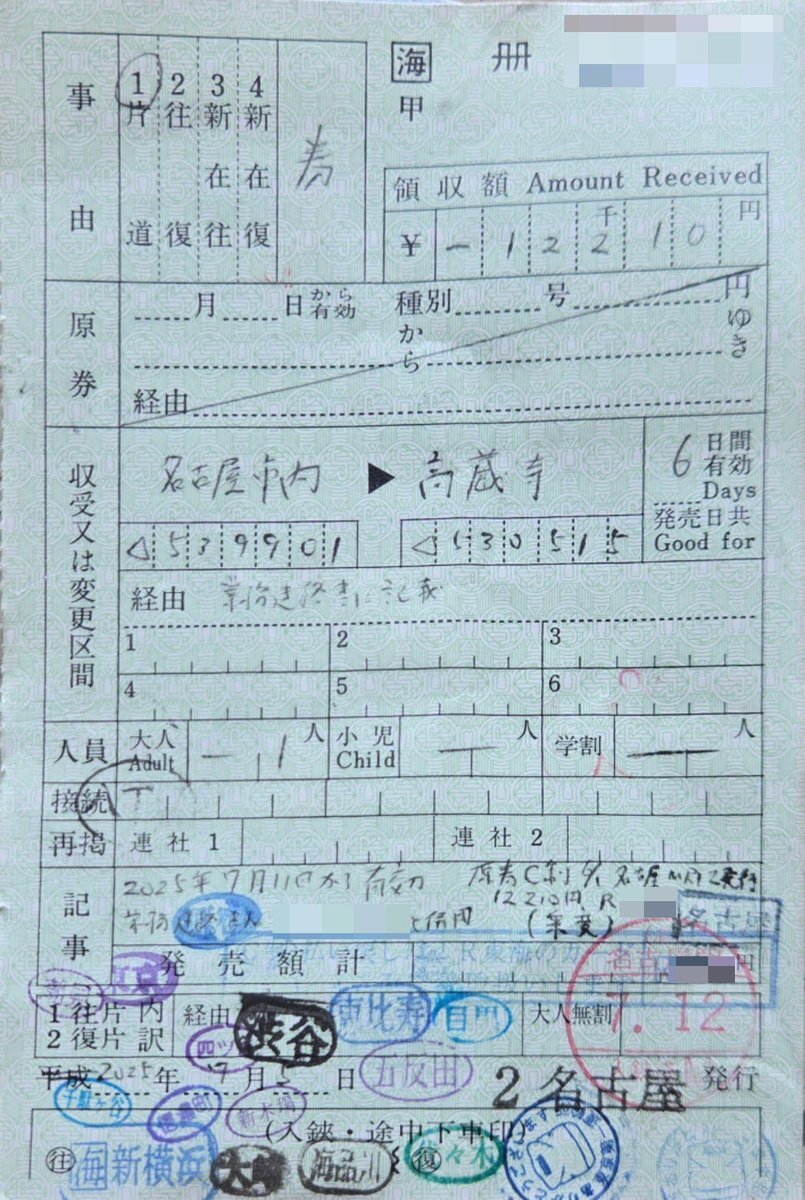 海 冊
甲
事由
1片道
2往復
3新在往
4新在復
領収額 Amount Received
千 円
¥ - 1 2 2 1 0
原券
月 日から有効 種別 号 円
から ゆき
経由
収受又は変更区間
名古屋市内 ▶ 高蔵寺
6日間有効
Days
発売日共
Good for
539901
530515
経由 業務連絡書に記載
1 2 3
4 5 6
人員 大人 Adult 1人 小児 Child 人 学割 人
接続
再掲 連社1 連社2
記事
2025年7月11日から有効
12210円
発売額計 円
1往片 内
2復片 訳
経由
大人無割
渋谷
恵比寿
目黒
東京
7.12
平成 2025年7月5日
2名古屋 発行
五反田
千駄ヶ谷
信濃町
新木場
(入鋏・途中下車印)
往 復
海 新横浜
大崎
海品川
代々木
名古屋